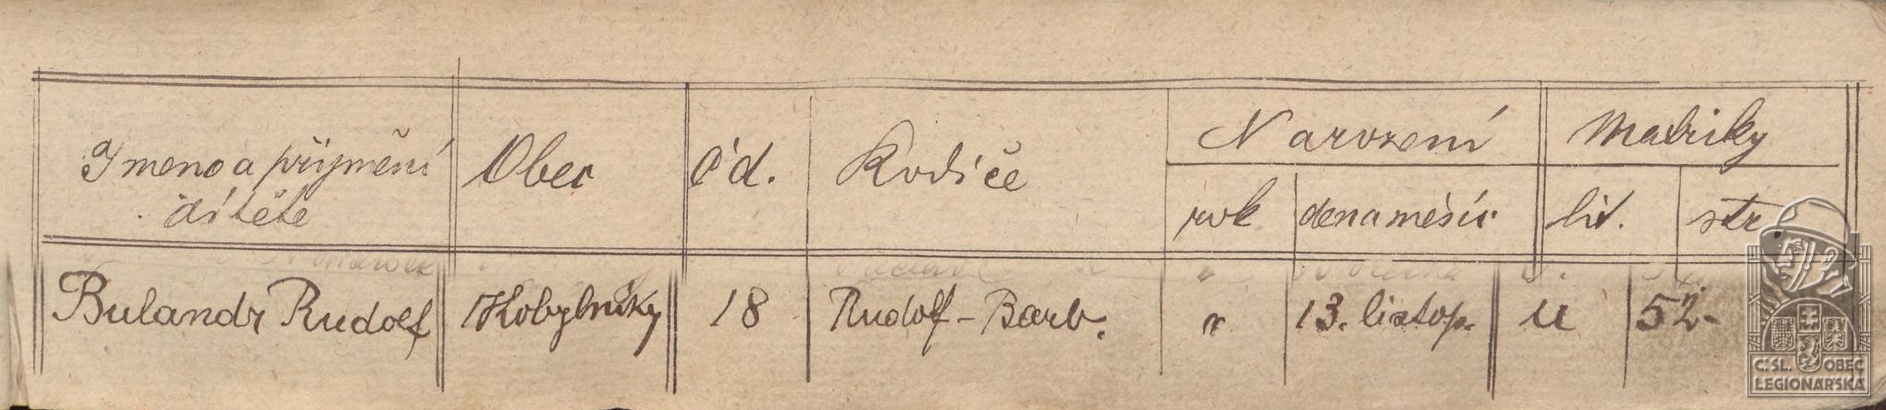 Jmeno a příjmění dítěte
Obec
čd.
Rodiče
Narození
Matriky
rok
den a měsíc
lit.
str.
Bulandr Rudolf
Kobylníky
18
Rudolf - Barb.
"
13. listop.
U
52.
Č.SL. OBEC
LEGIONÁŘSKÁ